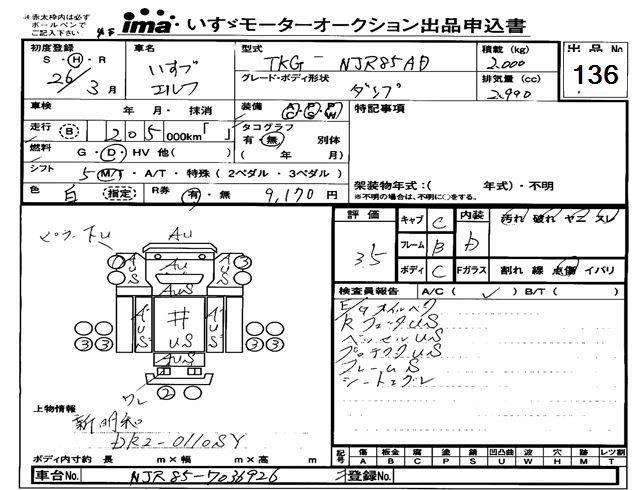 赤太枠内は必ず
ボールペンで
ご記入下さい
ima いすゞモーターオークション出品申込書
初度登録 車名 型式 積載 (kg) 出品No
S・H・R いすゞ TKG-NJR85AD 2,000 136
26年 3月 エルフ グレード・ボディ形状 排気量 (cc)
ダンプ 2,990
車検 年 月・ 抹消 装備 A/C P/S P/W 特記事項
走行 B 1 2 0 5 000km「 」 タコグラフ
有・無 別体
燃料 G・D・HV 他( ) ( 年 月)
シフト 5 M/T・A/T・特殊(2ペダル・3ペダル)
架装物年式:( 年式)・不明
色 白 指定 R券 有・無 9,170円
※不明の場合は、不明に○をする。
評価 キャブ C 内装 汚れ 破れ ヤニ スレ
3.5 フレーム B D
ボディ C Fガラス 割れ 線 点傷 イバリ
AU
AU
AUS
AUS
AUS
AUS
井
US
AUS
ワレ
① ③ ③ ③ ②
検査員報告 A/C( ✓ ) B/T( )
E/gオイルベタ
US
ベッセルUS
US
フレームUS
シート
上物情報
新明和
DR2-0110SY
ボディ内寸約 長 m×幅 m×高 m
記号 傷 板金 腐 塗 錆 凹凸曲 波 穴 跡 レツ割
A B C P S U W H M T
車台No. NJR85-7036926 登録No.